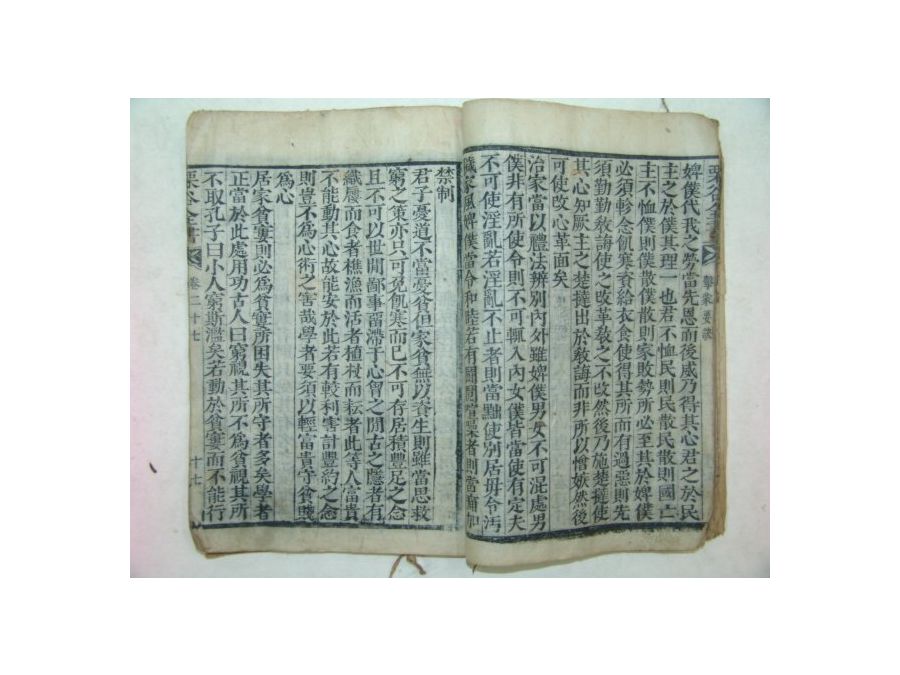 擊蒙要訣
婢僕代我之勞當先恩而後威乃得其心君之於民
主之於僕其理一也君不恤民則民散民散則國亡
主不恤僕則僕散僕散則家敗勢所必至其於婢僕
必須軫念飢寒資給衣食使得其所而有過惡則先
須勤勤敎誨使之改革敎之不改然後乃施楚撻使
其心知厥主之楚撻出於敎誨而非所以憎嫉然後
可使改心革面矣
治家當以禮法辨別內外雖婢僕男女不可混處男
僕非有所使令則不可輒入內女僕皆當使有定夫
不可使淫亂若淫亂不止者則當黜使別居毋令汚
穢家風婢僕當令和睦若有鬪鬩喧噪者則當痛加
禁制
君子憂道不當憂貧但家貧無以資生則雖當思救
窮之策亦只可免飢寒而已不可存居積豐足之念
且不可以世閒鄙事留滯于心胷之閒古之隱者有
織屨而食者樵漁而活者植杖而耘者此等人富貴
不能動其心故能安於此若有較利害計豐約之念
則豈不爲心術之害哉學者要須以輕富貴守貧賤
爲心
居家貧窶則必爲貧窶所困失其所守者多矣學者
正當於此處用功古人曰窮視其所不爲貧視其所
不取孔子曰小人窮斯濫矣若動於貧窶而不能行
栗谷全書 卷二十七 十七